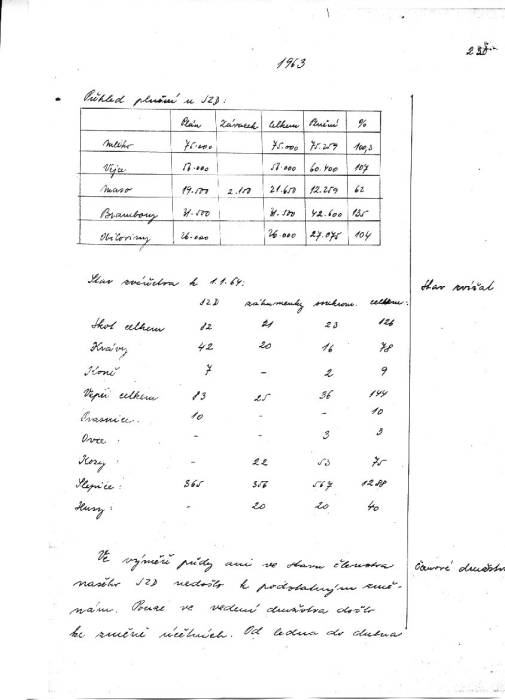 1963
Přehled plnění u JZD:
Plán Závazek Celkem Plnění %
Mléko 75.000 75.000 75.259 100,3
Vejce 56.000 60.400 107
Maso 19.500 2.150 21.650 12.259 62
Brambory 31.500 31.500 42.600 135
Obiloviny 26.000 26.000 27.075 104
Stav zvířectva k 1.1.64: Stav zvířat
JZD záhumenky soukrom. celkem:
Skot celkem 82 21 23 126
Krávy 42 20 16 78
Koně 7 - 2 9
Vepři celkem 83 25 36 144
Prasnice. 10 - - 10
Ovce : - - 3 3
Kozy : - 22 53 75
Slepice: 365 356 567 1288
Husy: - 20 20 40
Ve výměře půdy ani ve stavu členstva
našeho JZD nedošlo k podstatným změ-
nám. Pouze ve vedení družstva došlo
ke změně účetních. Od ledna do dubna